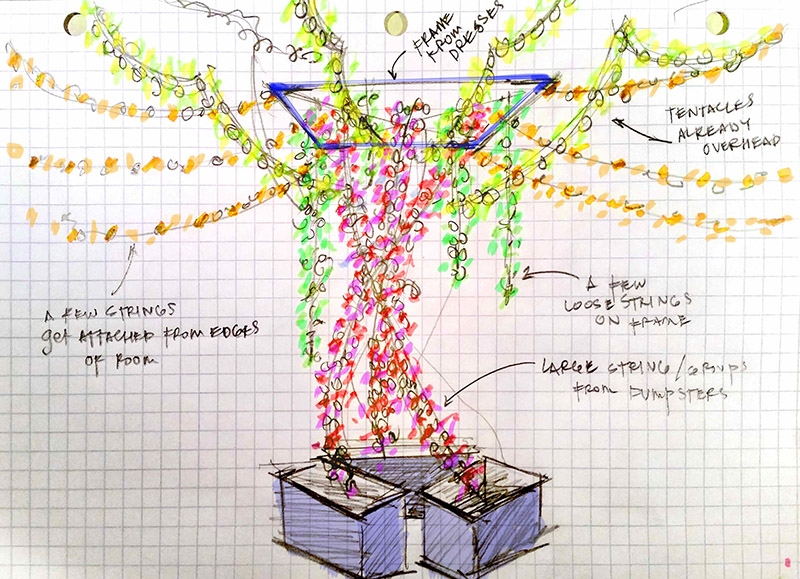 FRAME
FROM
DRESSES
TENTACLES
ALREADY
OVERHEAD
A FEW STRINGS
get ATTACHED FROM EDGES
OF ROOM
A FEW
LOOSE STRINGS
ON FRAME
LARGE STRING/GROUPS
FROM DUMPSTERS